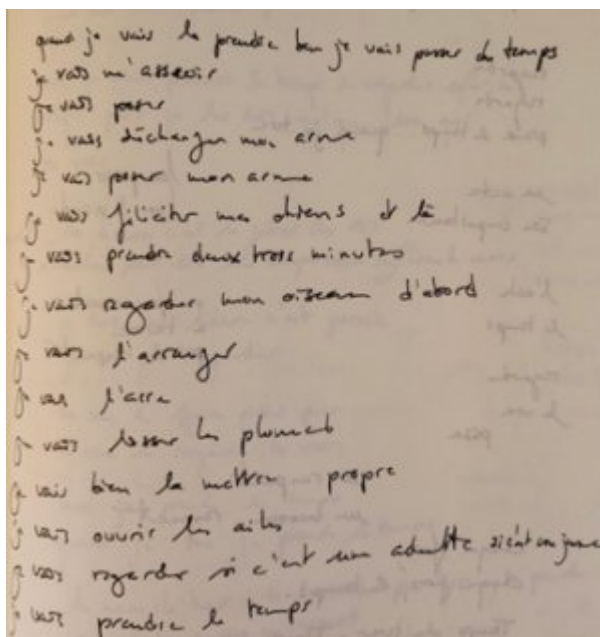 quand je vais le prendre ben je vais passer du temps
je vais m'asseoir
je vais poser
je vais décharger mon arme
je vais poser mon arme
je vais féliciter mes chiens et là
je vais prendre deux trois minutes
je vais regarder mon oiseau d'abord
je vais l'arranger
je vais l'
je vais lisser les plumes
je vais bien la mettre propre
je vais ouvrir les ailes
je vais regarder si c'est une adulte si c'est un jeune
je vais prendre le temps